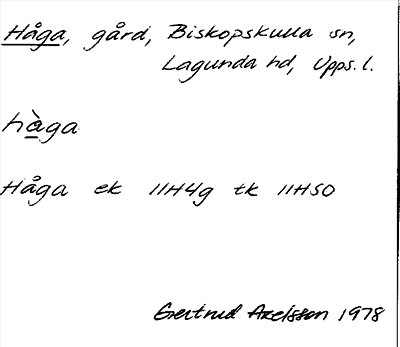 Håga, gård, Biskopskulla sn,
Lagunda hd, Upps. l.
hàga
Håga ek 11H4g tk 11HSO
Gertrud Axelsson 1978